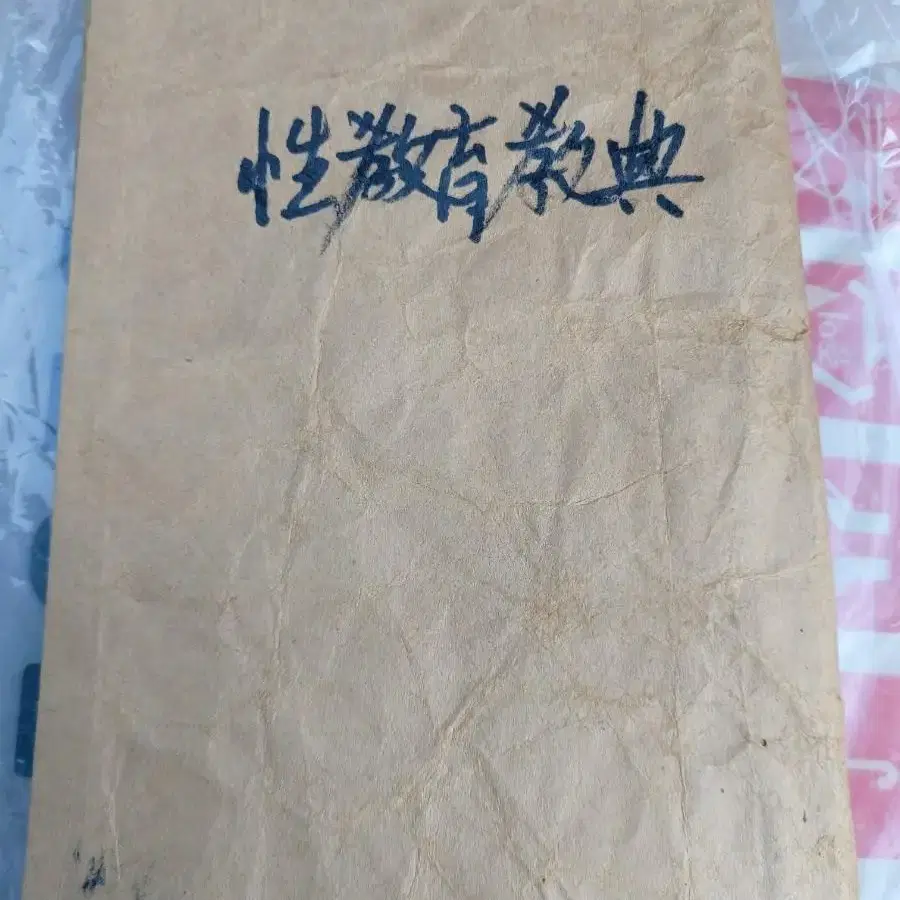 性教育教典